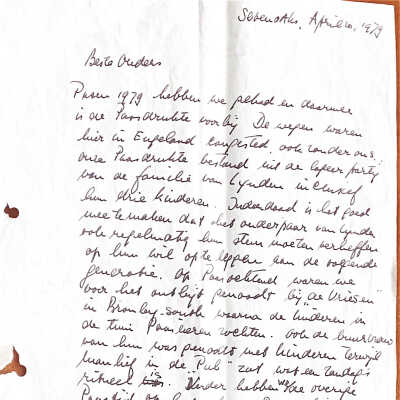 Sevenoaks, April 20, 1979
Beste Ouders
Pasen 1979 hebben we gehad en daarmee
is de Paasdrukte voorbij. De wegen waren
hier in Engeland congested, ook zonder ons;
onze Paasdrukte bestond uit de logeerpartij
van de familie van Lynden inclusief
hun drie kinderen. Inderdaad is het goed
mee te maken dat het ouderpaar van Lynden
ook regelmatig hun stem moeten verheffen
om hun wil op te leggen aan de volgende
generatie. Op Paasochtend waren we
voor het ontbijt genoodt bij "de Vriesen"
in Bromley-South waarna de kinderen in
de tuin Paaseieren zochten. Ook de buurvrouw
van hun was genoodt met kinderen terwijl
manlief in de "Pub" zat, wat een zondags
ritueel is. Verder hebben we de overige